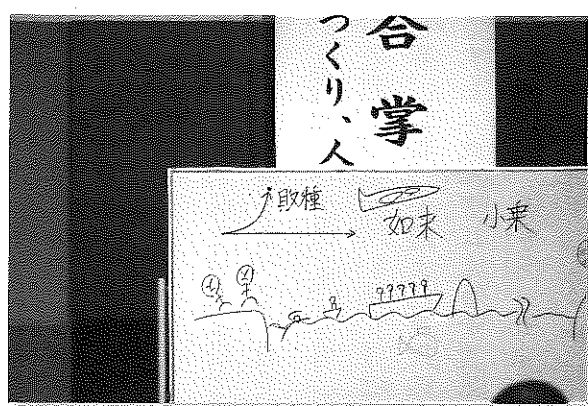 合掌
つくり、人
敗種 如来 小乗